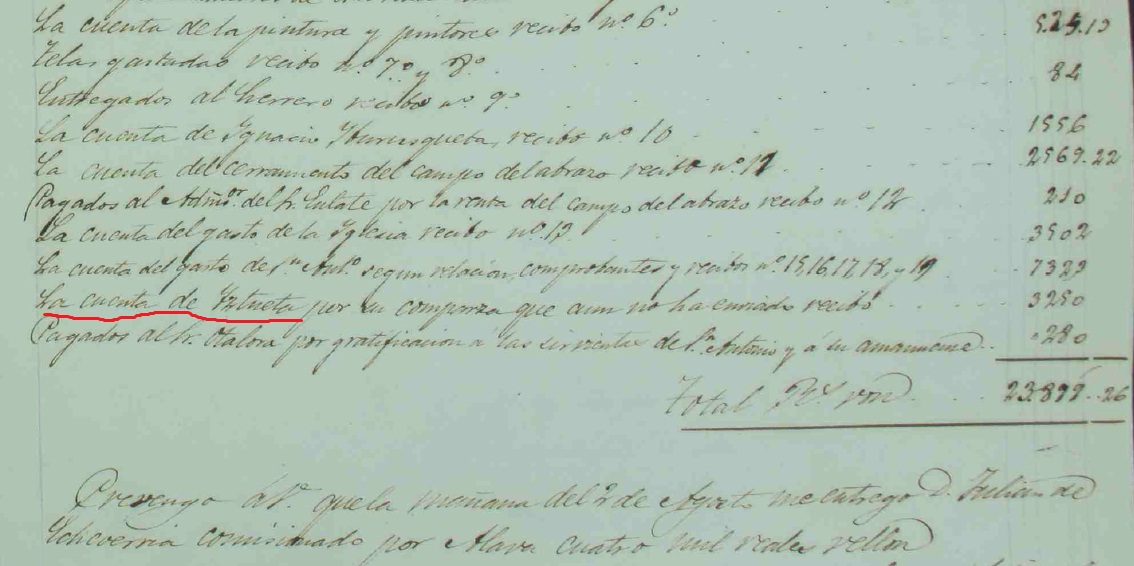 La cuenta de la pintura y pintores recibo nº 6º 525.10
Telas gastadas recibo nº 7º y 8º
Entregados al herrero recibo nº 9º 84
La cuenta de Ignacio recibo nº 10 1556
La cuenta del cerramiento del campo del abrazo recibo nº 11 2569.22
Pagados al Admor. del Sr. Eulate por la renta del campo del abrazo recibo nº 12 210
La cuenta del gasto de la Iglesia recibo nº 13 3502
La cuenta del gasto de Sn. Anto. segun relacion, comprobantes y recibos nº 15, 16, 17, 18, y 19 7323
La cuenta de Iztueta por su comparsa que aun no ha enviado recibo 3250
Pagados al Sr. Otalora por gratificacion a las sirvientas de Sn. Antonio y á su amanuense 280
Total Rs. von 23.899..26
Prevengo á V. que la mañana del 2 de Agosto me entregó D. Julian de
Echeverria comisionado por Alava cuatro mil reales vellon